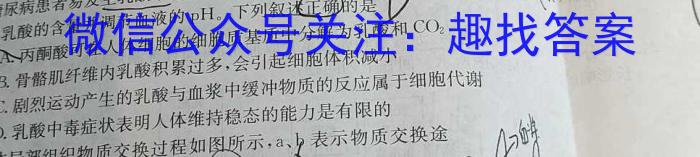 尿病患者易发生
乳酸的含 调节血液的pH。下列叙述正确的是
微信公众号关注：趣找答案
A.丙酮酸可在人体细胞的细胞质基质中分解为乳酸和CO₂
B.骨骼肌纤维内乳酸积累过多,会引起细胞体积减小
C.剧烈运动产生的乳酸与血浆中缓冲物质的反应属于细胞代谢
D.乳酸中毒症状表明人体维持稳态的能力是有限的
局部组织物质交换过程如图所示,a、b表示物质交换途